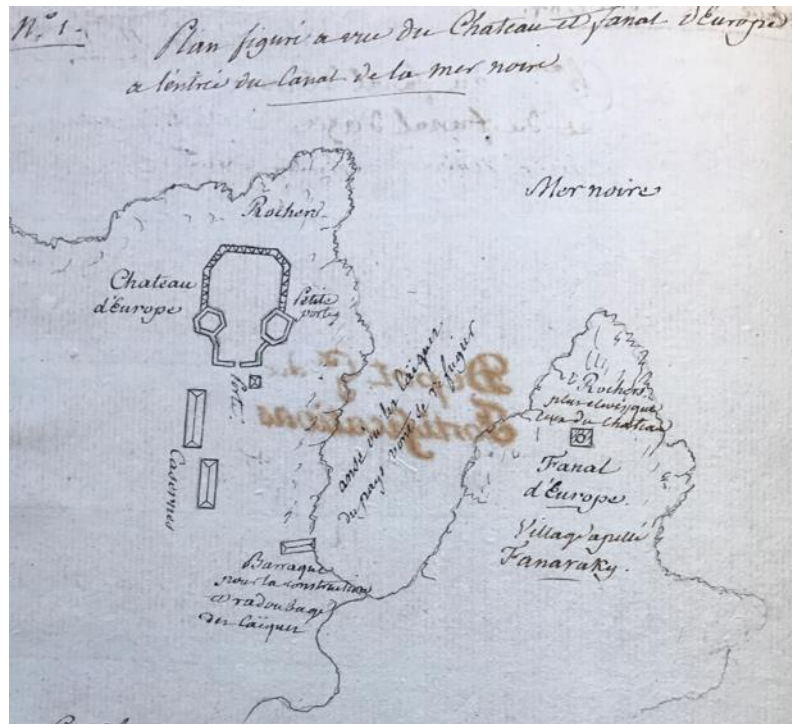 N.º 1.
Plan figuré a vue du Chateau et fanal d'Europe
a l'entrée du Canal de la mer noire
Mer noire
Rochers
Chateau
d'Europe
Petite
porte
Porte
Casernes
anse où les Caïques
du pays vont se refugier
Rochers
plus elevés que
ceux du Chateau
Fanal
d'Europe.
Village apellé
Fanaraky.
Barraque
pour la construction
et radoubage
des Caïques
Dépôt g.al des
Fortifications